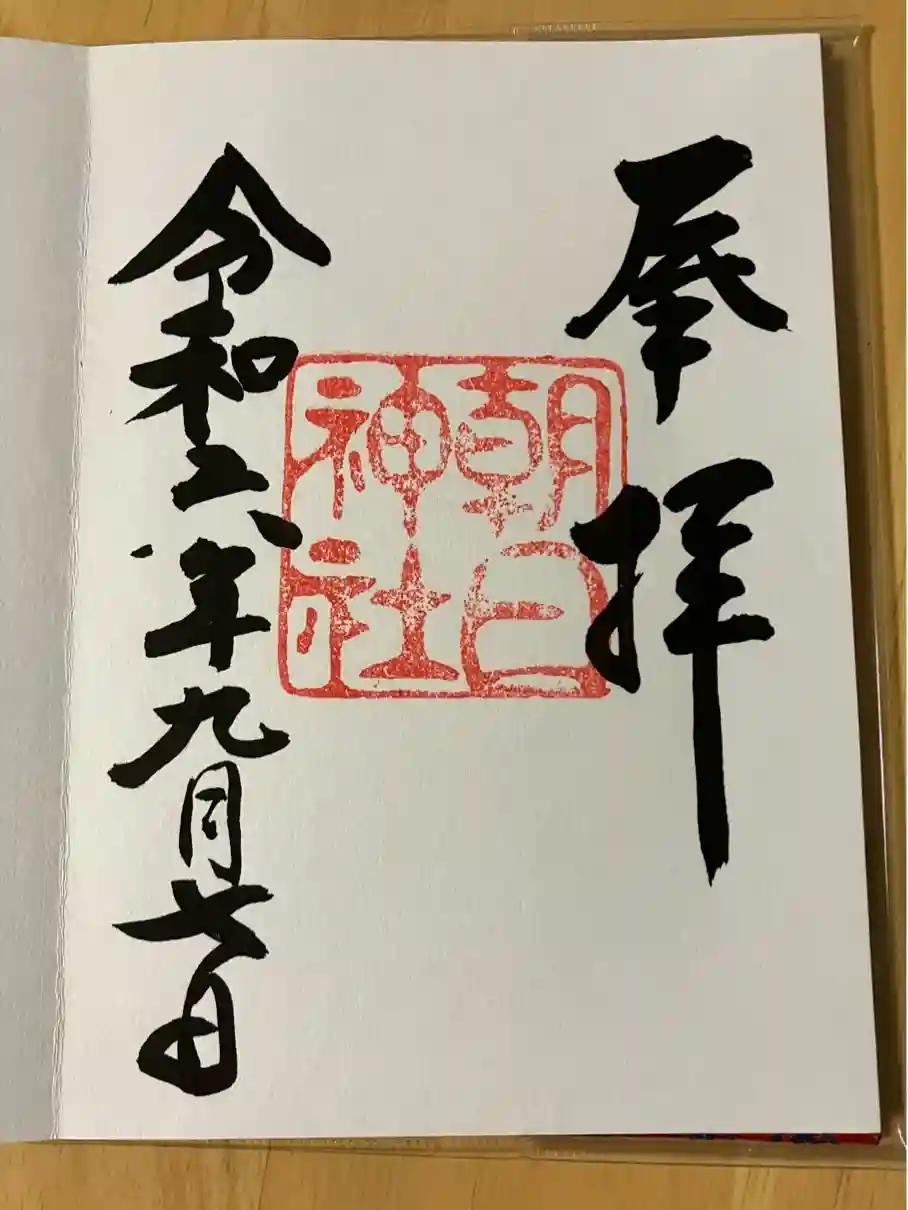 奉拝
朝日
神社
令和六年九月七日